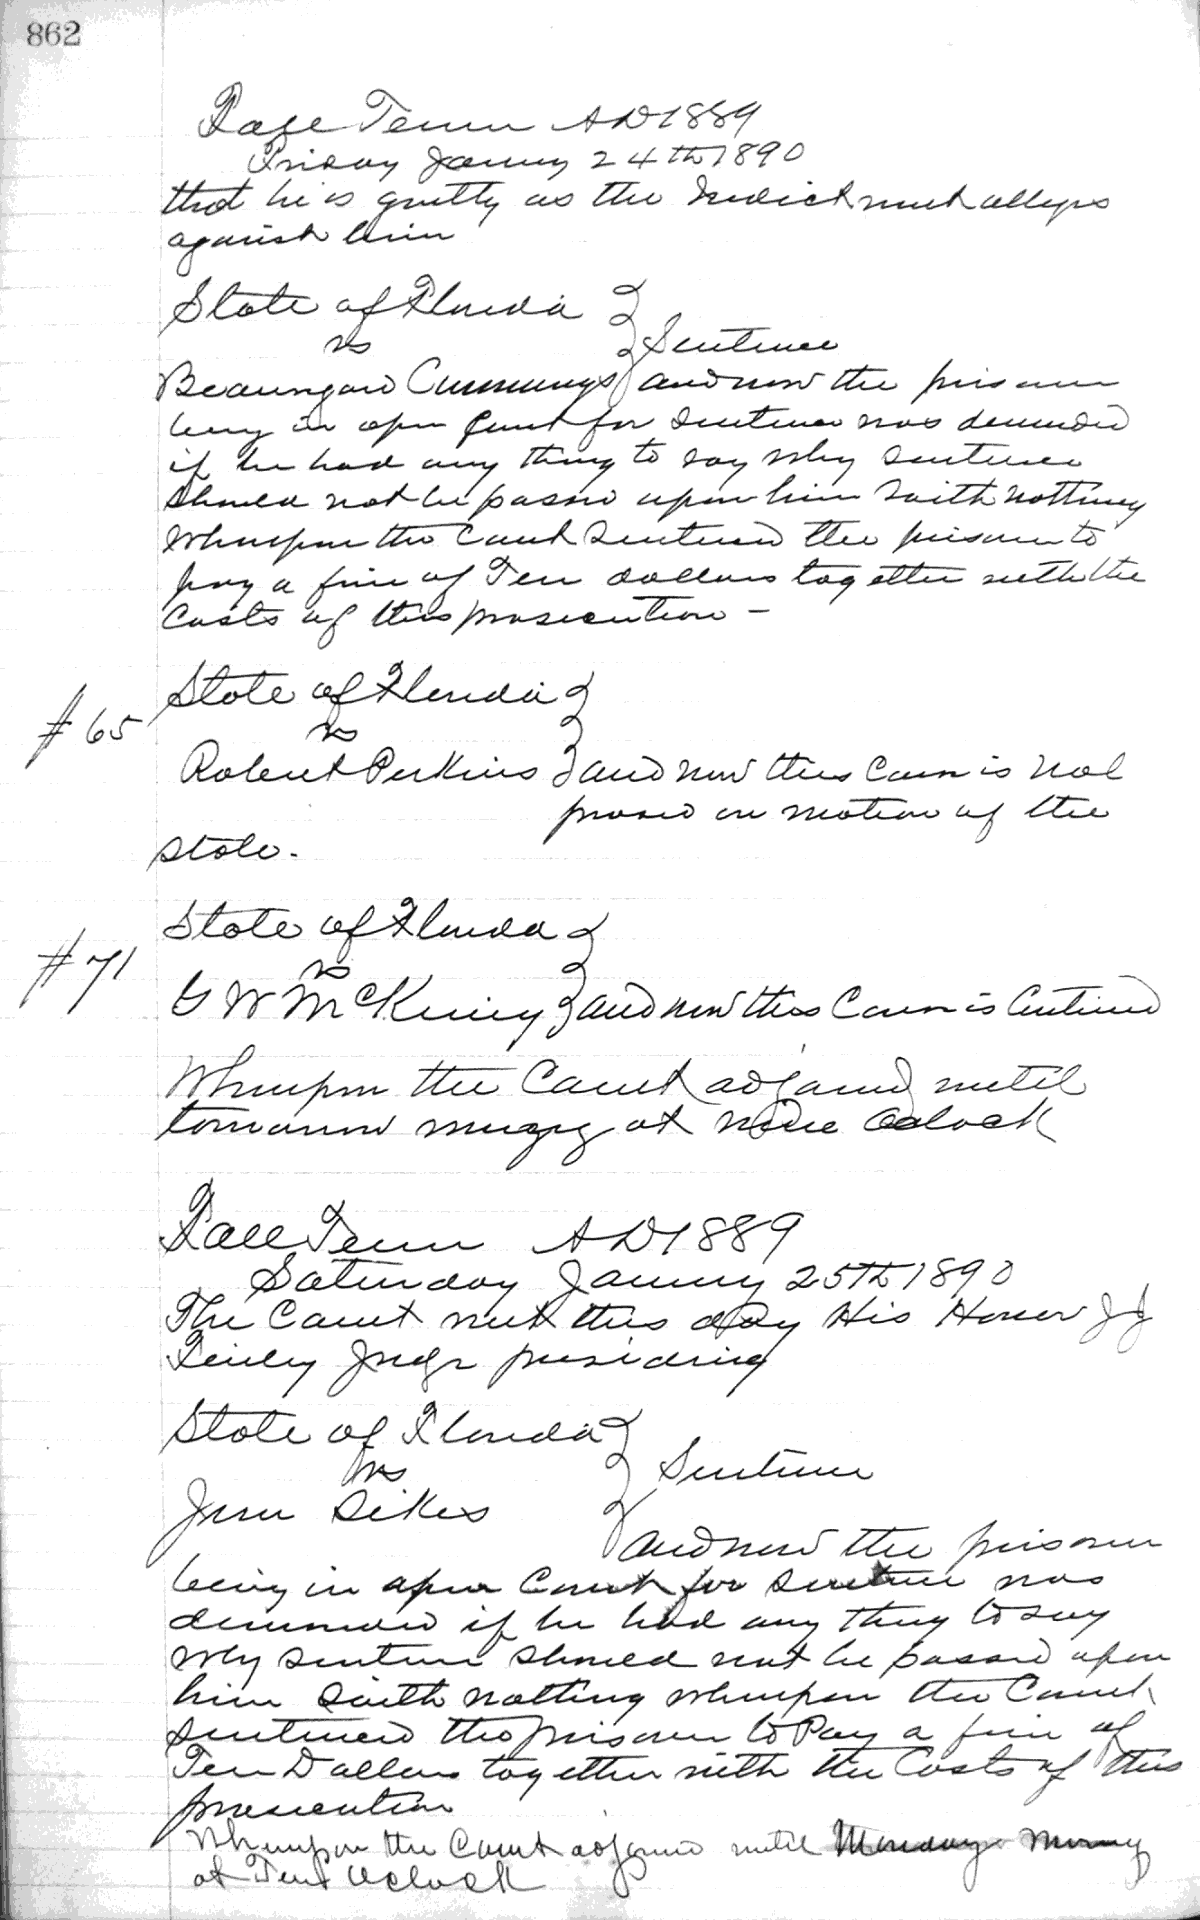 862
Fall Term AD 1889
Friday January 24th 1890
that he is guilty as the Indictment alleges
against him
State of Florida
vs
Sentence
Beauregard Cummings and now the prisoner
being in open Court for Sentence was demanded
if he had any thing to say why sentence
should not be passed upon him Saith nothing
Whereupon the Court Sentenced the prisoner to
pay a fine of Ten dollars together with the
Costs of this prosecution –
State of Florida
#65
vs
Robert Perkins and now this Cause is Nol
prosed on motion of the
State.
State of Florida
#71
vs
G W McKinney and now this Cause is Continued
Whereupon the Court adjourned until
tomorrow morning at Nine Oclock
Fall Term AD 1889
Saturday January 25th 1890
The Court met this day His Honor J J
Finley Judge presiding
State of Florida
vs
Sentence
Jim Sikes
and now the prisoner
being in open Court for Sentence was
demanded if he had any thing to say
why sentence should not be passed upon
him Saith nothing whereupon the Court
sentenced the prisoner to Pay a fine of
Ten Dollars together with the Costs of this
prosecution
Whereupon the Court adjourned until Monday Morning
at Ten Oclock